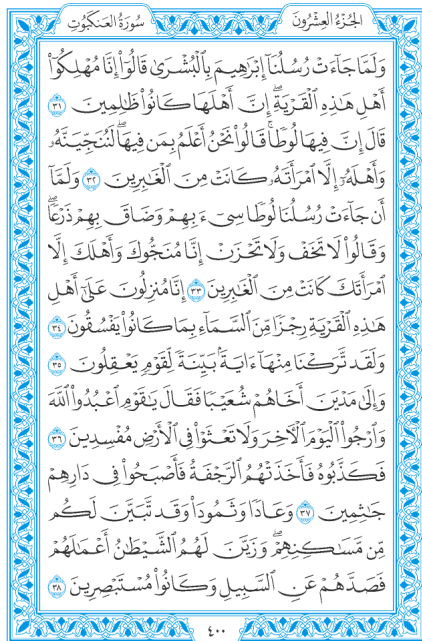 الجُزْءُ العِشْرُونَ
سُورَةُ العَنكَبُوتِ
وَلَمَّا جَآءَتْ رُسُلُنَآ إِبْرَٰهِيمَ بِٱلْبُشْرَىٰ قَالُوٓا۟ إِنَّا مُهْلِكُوٓا۟
أَهْلِ هَٰذِهِ ٱلْقَرْيَةِ ۖ إِنَّ أَهْلَهَا كَانُوا۟ ظَٰلِمِينَ ٣١
قَالَ إِنَّ فِيهَا لُوطًا ۚ قَالُوا۟ نَحْنُ أَعْلَمُ بِمَن فِيهَا ۖ لَنُنَجِّيَنَّهُۥ
وَأَهْلَهُۥٓ إِلَّا ٱمْرَأَتَهُۥ كَانَتْ مِنَ ٱلْغَٰبِرِينَ ٣٢ وَلَمَّآ
أَن جَآءَتْ رُسُلُنَا لُوطًا سِىٓءَ بِهِمْ وَضَاقَ بِهِمْ ذَرْعًا ۖ
وَقَالُوا۟ لَا تَخَفْ وَلَا تَحْزَنْ ۖ إِنَّا مُنَجُّوكَ وَأَهْلَكَ إِلَّا
ٱمْرَأَتَكَ كَانَتْ مِنَ ٱلْغَٰبِرِينَ ٣٣ إِنَّا مُنزِلُونَ عَلَىٰٓ أَهْلِ
هَٰذِهِ ٱلْقَرْيَةِ رِجْزًا مِّنَ ٱلسَّمَآءِ بِمَا كَانُوا۟ يَفْسُقُونَ ٣٤
وَلَقَد تَّرَكْنَا مِنْهَآ ءَايَةًۢ بَيِّنَةً لِّقَوْمٍ يَعْقِلُونَ ٣٥
وَإِلَىٰ مَدْيَنَ أَخَاهُمْ شُعَيْبًا فَقَالَ يَٰقَوْمِ ٱعْبُدُوا۟ ٱللَّهَ
وَٱرْجُوا۟ ٱلْيَوْمَ ٱلْءَاخِرَ وَلَا تَعْثَوْا۟ فِى ٱلْأَرْضِ مُفْسِدِينَ ٣٦
فَكَذَّبُوهُ فَأَخَذَتْهُمُ ٱلرَّجْفَةُ فَأَصْبَحُوا۟ فِى دَارِهِمْ
جَٰثِمِينَ ٣٧ وَعَادًا وَثَمُودَا۟ وَقَد تَّبَيَّنَ لَكُم
مِّن مَّسَٰكِنِهِمْ ۖ وَزَيَّنَ لَهُمُ ٱلشَّيْطَٰنُ أَعْمَٰلَهُمْ
فَصَدَّهُمْ عَنِ ٱلسَّبِيلِ وَكَانُوا۟ مُسْتَبْصِرِينَ ٣٨
٤٠٠